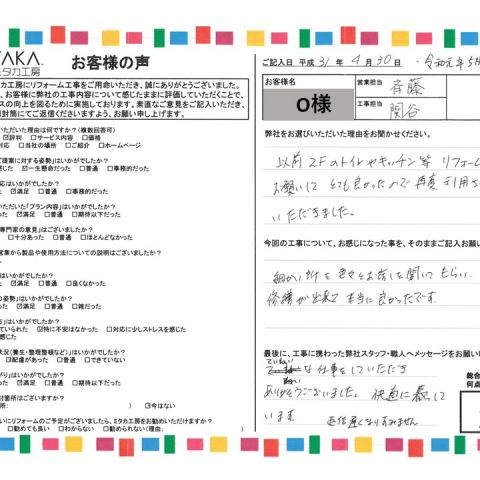 TAKA.
ミタカ工房
お客様の声
タカ工房にリフォーム工事をご用命いただき、誠にありがとうございました。
、お客様に弊社の工事内容について感じたままに評価していただくことで、
スの向上を図るために実施しております。率直なご意見をご記入いただき、
封筒にてご返信くださいますよう、お願い申し上げます。
いただいた理由は何ですか?(複数回答可)
☑評判 □サービス内容 □価格
対応 □当社の場所 □ご紹介 □ホームページ
ご提案に対する姿勢」はいかがでしたか?
感じた ☑一生懸命だった □普通 □事務的だった
応はいかがでしたか?
った ☑満足 □普通 □事務的だった
いただいた「プラン内容」はいかがでしたか?
た ☑満足 □普通 □期待以下だった
専門家の意見」はございましたか?
□十分あった □普通 □ほとんどなかった
営業から製品や使用方法についての説明はございましたか?
☑満足 □普通 □良くなかった
の姿勢」はいかがでしたか?
った ☑満足 □普通 □雑だった
方」はいかがでしたか?
ていられた ☑特に不安はなかった □対応に少しストレスを感じた
状況(養生・整理整頓など)」はいかがでしたか?
☑配慮があった □普通 □できていない
がり」はいかがでしたか?
った ☑満足 □普通 □期待以下だった
討箇所はございますか?
所: ) ☑今はない
にリフォームのご予定がございましたら、ミタカ工房をお勧めいただけますか?
□勧めても良い □わからない □勧められない(理由:
ご記入日 平成 31年 4月 30日 ・令和元年5月
お客様名
O様
営業担当 斉藤
工事担当 関谷
弊社をお選びいただいた理由をお聞かせください。
以前2Fのトイレやキッチン等リフォーム
お願いしてとても良かったので再度利用さ
いただきました。
今回の工事について、お感じになった事を、そのままご記入お願い
細かい所を色々とお話しを聞いてもらい
修繕が出来て本当に良かったです。
最後に、工事に携わった弊社スタッフ・職人へメッセージをお願い
ていねい
な仕事をしていただき
ありがとうございました。快適に暮して
います 返信遅くなりすみません
総合
何点